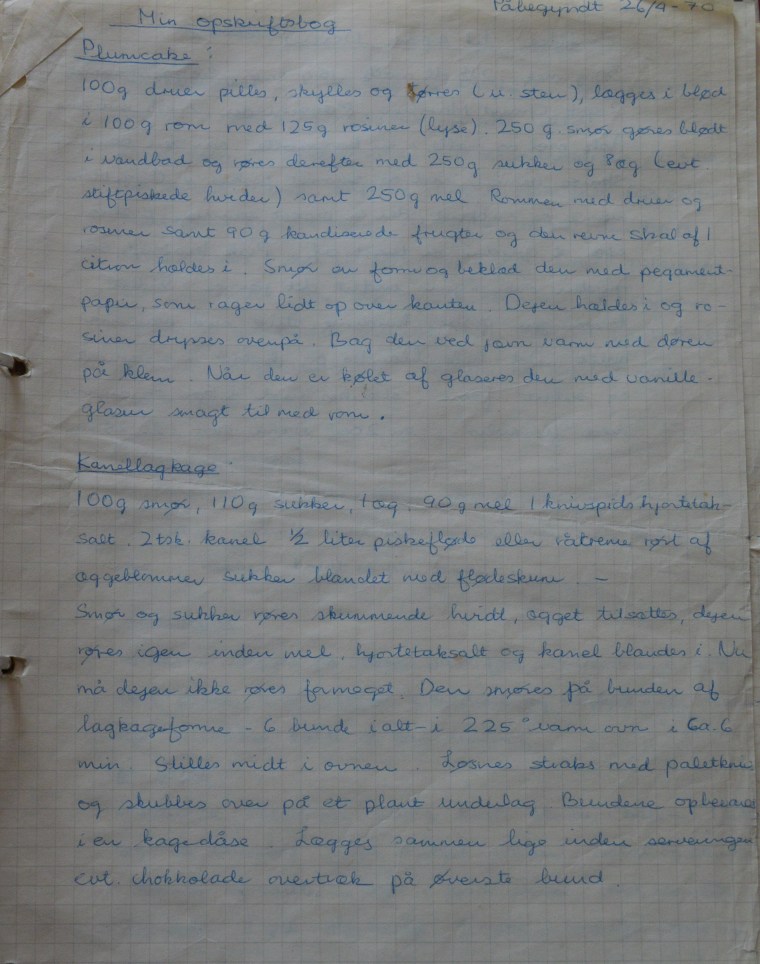 Påbegyndt 26/4-70
Min opskriftsbog
Plumcake:
100g druer pilles, skylles og tørres (u. sten), lægges i blød
i 100g rom med 125g rosiner (lyse). 250 g smør gøres blødt
i vandbad og røres derefter med 250g sukker og æg (evt.
stiftpiskede hvider) samt 250g mel Rommen med druer og
rosiner samt 90g kandiserede frugter og den revne skal af 1
citron hældes i. Smør en form og beklæd den med pegament-
papir, som rager lidt op over kanten. Dejen hældes i og ro-
siner drysses ovenpå. Bag den ved jævn varm med døren
på klem. Når den er kølet af glaseres den med vanille-
glasur smagt til med rom.
Kanellagkage
100g smør, 110g sukker, 1 æg, 90g mel 1 knivspids hjortetak-
salt. 2 tsk. kanel ½ liter piskefløde eller råcreme rørt af
æggeblommer sukker blandet med flødeskum. -
Smør og sukker røres skummende hvidt, ægget tilsættes, dejen
røres igen inden mel, hjortetaksalt og kanel blandes i. Nu
må dejen ikke røres for meget. Den smøres på bunden af
lagkageforme - 6 bunde ialt - i 225° varm ovn i ca. 6
min. Stilles midt i ovnen. Løsnes straks med paletkniv
og skubbes over på et plant underlag. Bundene opbevares
i en kagedåse. Lægges sammen lige inden serveringen
evt. chokkolade overtræk på øverste bund.